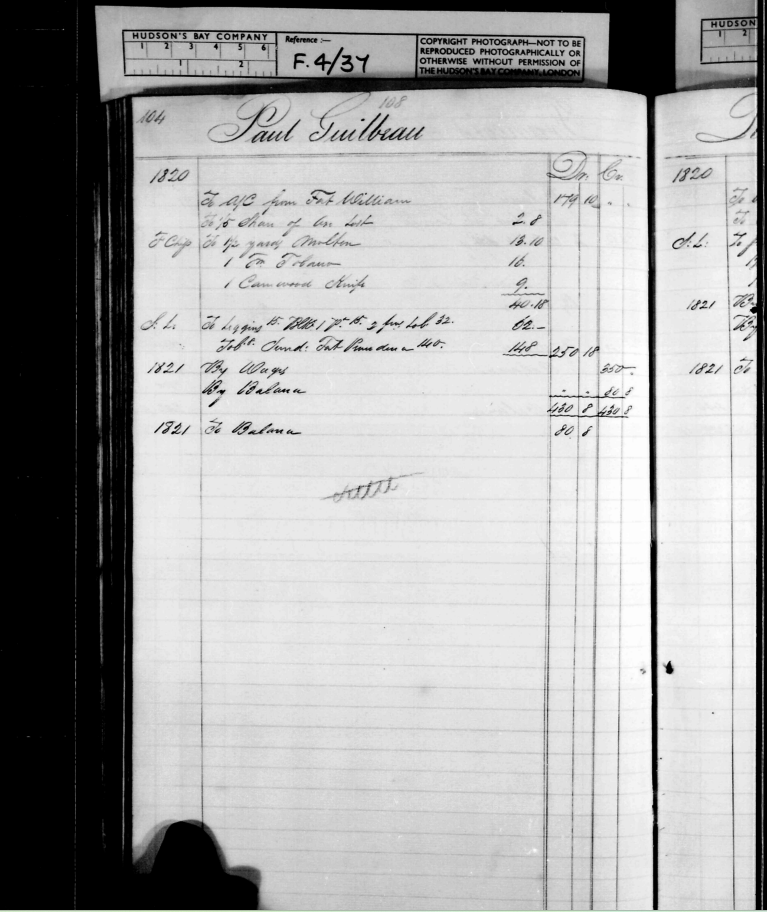 HUDSON'S BAY COMPANY
1 2 3 4 5 6
1 2
Reference :—
F.4/37
COPYRIGHT PHOTOGRAPH—NOT TO BE
REPRODUCED PHOTOGRAPHICALLY OR
OTHERWISE WITHOUT PERMISSION OF
THE HUDSON'S BAY COMPANY, LONDON
HUDSON
1 2
104 108
Paul Guilbeau
Dr. Cr.
1820
To A/C from Fort William 179 10
To 1/5 Share of Lost 2.8
To 1/2 yard Molton 13.10
1 Tobacco 16.
1 Camwood Knife 9.
40.18
S. L. To Leggins 15. 1 pr. 15. 2 32. 62.–
Fort 140. 148 250 18
1821 By Wages 350
By Balance 80 8
430 8 430 8
1821 To Balance 80 8
1820
To
To
S. L: To
1821 By
By
1821 To